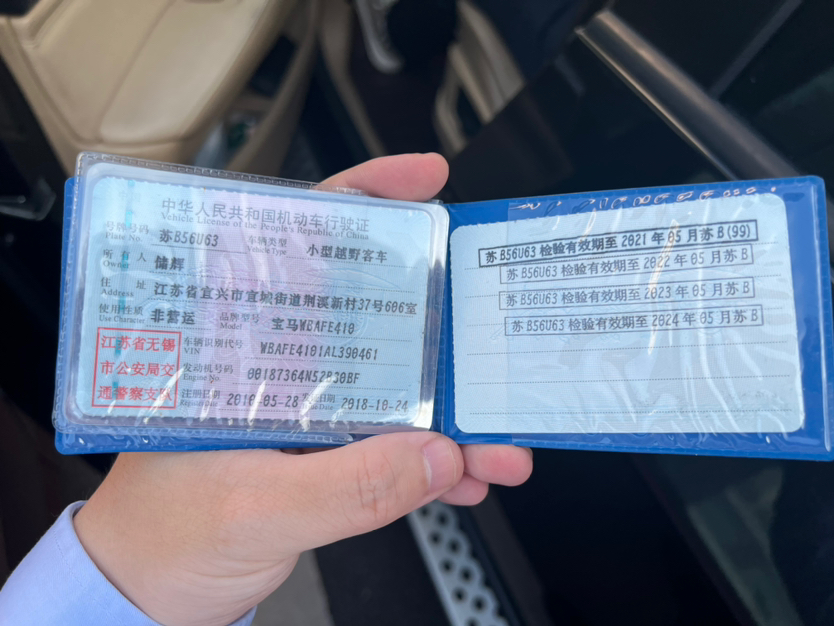 中华人民共和国机动车行驶证
Vehicle License of the People's Republic of China
号牌号码 苏B56U63 车辆类型 小型越野客车
Plate No. Vehicle Type
所有人 储辉
Owner
住址 江苏省宜兴市宜城街道荆溪新村37号606室
Address
使用性质 非营运 品牌型号 宝马WBAFE410
Use Character Model
江苏省无锡
市公安局交
通警察支队
车辆识别代号 WBAFE4101AL390461
VIN
发动机号码 00187364N52B30BF
Engine No.
注册日期 2010-05-28 发证日期 2018-10-24
Register Date Issue Date
苏B56U63 检验有效期至 2021 年 05 月苏 B (99)
苏B56U63 检验有效期至 2022 年 05 月苏 B
苏B56U63 检验有效期至 2023 年 05 月苏 B
苏B56U63 检验有效期至 2024 年 05 月苏 B